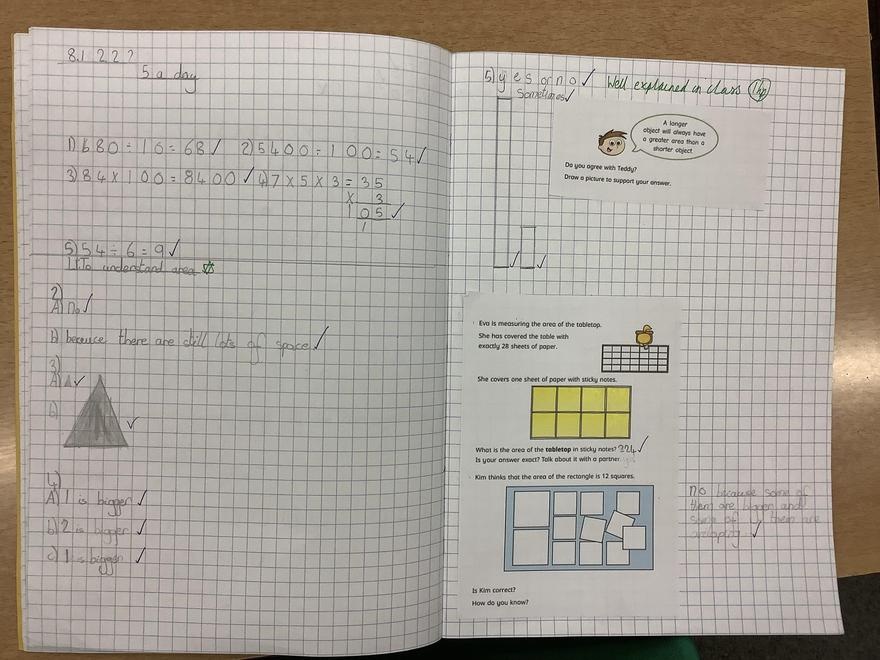 8.1 2.2 ?
5 a day
1) 680 ÷ 10 = 68 ✓ 2) 5400 ÷ 100 = 54 ✓
3) 84 X 100 = 8400 ✓ 4) 7 X 5 X 3 = 35
X 3
105 ✓
1
5) 54 ÷ 6 = 9 ✓
To understand area
2)
A) no ✓
b) because there are still lots of space ✓
3)
A) ✓
b) ✓
4)
A) 1 is bigger ✓
b) 2 is bigger ✓
c) 1 is bigger ✓
5) yes or no ✓ Well explained in class 1hp
Sometimes ✓
A longer
object will always have
a greater area than a
shorter object
Do you agree with Teddy?
Draw a picture to support your answer.
Eva is measuring the area of the tabletop.
She has covered the table with
exactly 28 sheets of paper.
She covers one sheet of paper with sticky notes.
What is the area of the tabletop in sticky notes? 224 ✓
Is your answer exact? Talk about it with a partner
Kim thinks that the area of the rectangle is 12 squares.
no because some of
them are bigger and
some of them are
✓
Is Kim correct?
How do you know?